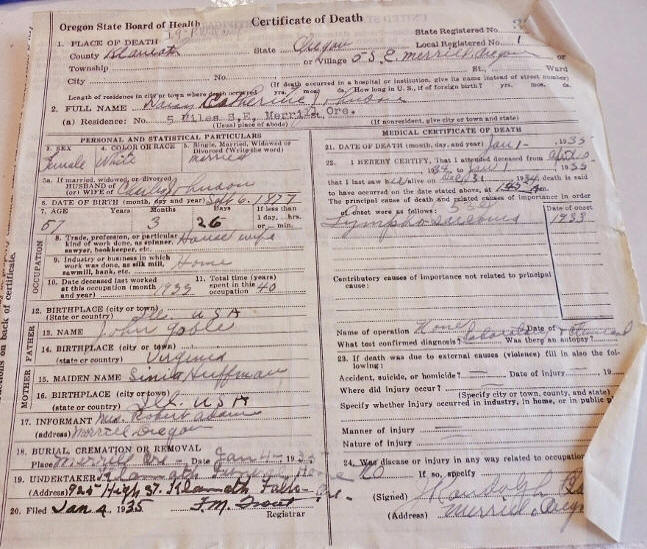 Oregon State Board of Health
Certificate of Death
State Registered No.
1. PLACE OF DEATH
Local Registered No. 1
County Klamath State Oregon
Township or Village 5 S.E. Merrill, Oregon or
City No. St. Ward
(If death occurred in a hospital or institution, give its name instead of street number)
Length of residence in city or town where death occurred yrs. mos. ds. How long in U.S., if of foreign birth? yrs. mos. ds.
2. FULL NAME Catherine
(a) Residence: No. 5 Miles S.E. Merrill, Ore.
(Usual place of abode) (If nonresident, give city or town and state)
PERSONAL AND STATISTICAL PARTICULARS
3. SEX 4. COLOR OR RACE 5. Single, Married, Widowed or Divorced (Write the word)
Female White Married
5a. If married, widowed or divorced
HUSBAND of
(or) WIFE of Charley
6. DATE OF BIRTH (month, day and year) Sept 6, 1877
7. AGE Years Months Days If less than 1 day, hrs. or min.
57 3 26
8. Trade, profession, or particular kind of work done, as spinner, sawyer, bookkeeper, etc. House wife
9. Industry or business in which work was done, as silk mill, sawmill, bank, etc. Home
10. Date deceased last worked at this occupation (month and year) 1933
11. Total time (years) spent in this occupation 40
OCCUPATION
12. BIRTHPLACE (city or town)
(State or country) USA
FATHER
13. NAME John
14. BIRTHPLACE (city or town)
(state or country) Virginia
MOTHER
15. MAIDEN NAME Huffman
16. BIRTHPLACE (city or town)
(state or country) Ill. USA
17. INFORMANT Mrs. Robert Adams
(address) Merrill Oregon
18. BURIAL, CREMATION OR REMOVAL
Place Merrill Ore. Date Jan 4 - 1935
19. UNDERTAKER Klamath Funeral Home
(Address) 925 High St. Klamath Falls - Ore.
20. Filed Jan 4, 1935 F.M. Registrar
MEDICAL CERTIFICATE OF DEATH
21. DATE OF DEATH (month, day, and year) Jan 1 - 1935
22. I HEREBY CERTIFY, That I attended deceased from
1934 to Jan 1
that I last saw h alive on Dec 31 1934 death is said
to have occurred on the date stated above, at
The principal cause of death and related causes of importance in order
of onset were as follows:
Date of onset
Lympho Sarcoma 1933
Contributory causes of importance not related to principal cause:
Name of operation None Date of
What test confirmed diagnosis? Laboratory Was there an autopsy?
23. If death was due to external causes (violence) fill in also the following:
Accident, suicide, or homicide? — Date of injury — 19
Where did injury occur? —
(Specify city or town, county, and state)
Specify whether injury occurred in industry, in home, or in public
Manner of injury
Nature of injury
24. Was disease or injury in any way related to occupation
No If so, specify
(Signed) Randolph
(Address) Merrill, Oreg
on back of certificate.